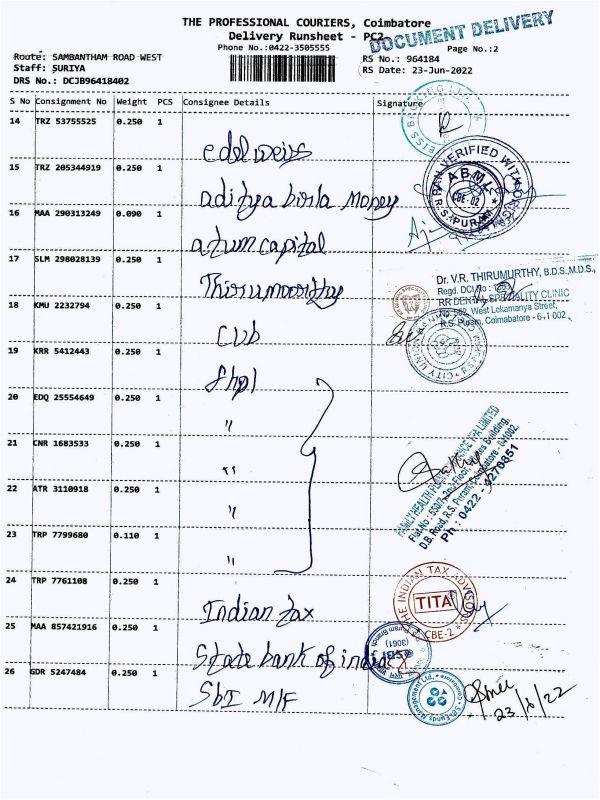 THE PROFESSIONAL COURIERS, Coimbatore
Delivery Runsheet - PC2
DOCUMENT DELIVERY
Phone No.:0422-3505555
Page No.:2
Route: SAMBANTHAM ROAD WEST
Staff: SURIYA
DRS No.: DCJB96418402
RS No.: 964184
RS Date: 23-Jun-2022
S No Consignment No Weight PCS Consignee Details Signature
14 TRZ 53755525 0.250 1
edelweiss
15 TRZ 205344919 0.250 1
aditya birla money
PAN VERIFIED WITH ORIGINAL
ABML
CBE-02
R.S. PURAM
16 MAA 290313249 0.090 1
atum capital
17 SLM 298028139 0.250 1
Thirumoorthy
Dr. V.R. THIRUMURTHY, B.D.S.,M.D.S.,
Regd. DCI No :
RR DENTAL SPECIALITY CLINIC
No: 562, West Lokamanya Street,
R.S. Puram, Coimbatore - 641 002
18 KMU 2232794 0.250 1
CUB
CITY UNION
19 KRR 5412443 0.250 1
fhpl
20 EDQ 25554649 0.250 1
"
21 CNR 1683533 0.250 1
"
22 ATR 3110918 0.250 1
"
23 TRP 7799680 0.110 1
"
FAMILY HEALTH PLAN INSURANCE TPA LIMITED
D.B. Road, R.S. Puram, Coimbatore - 641002.
Ph : 0422 - 4270851
24 TRP 7761108 0.250 1
Indian tax
THE INDIAN TAX ADVISORS
TITA
CBE-2
25 MAA 857421916 0.250 1
State bank of india
26 GDR 5247484 0.250 1
SbI M/F
23/6/22